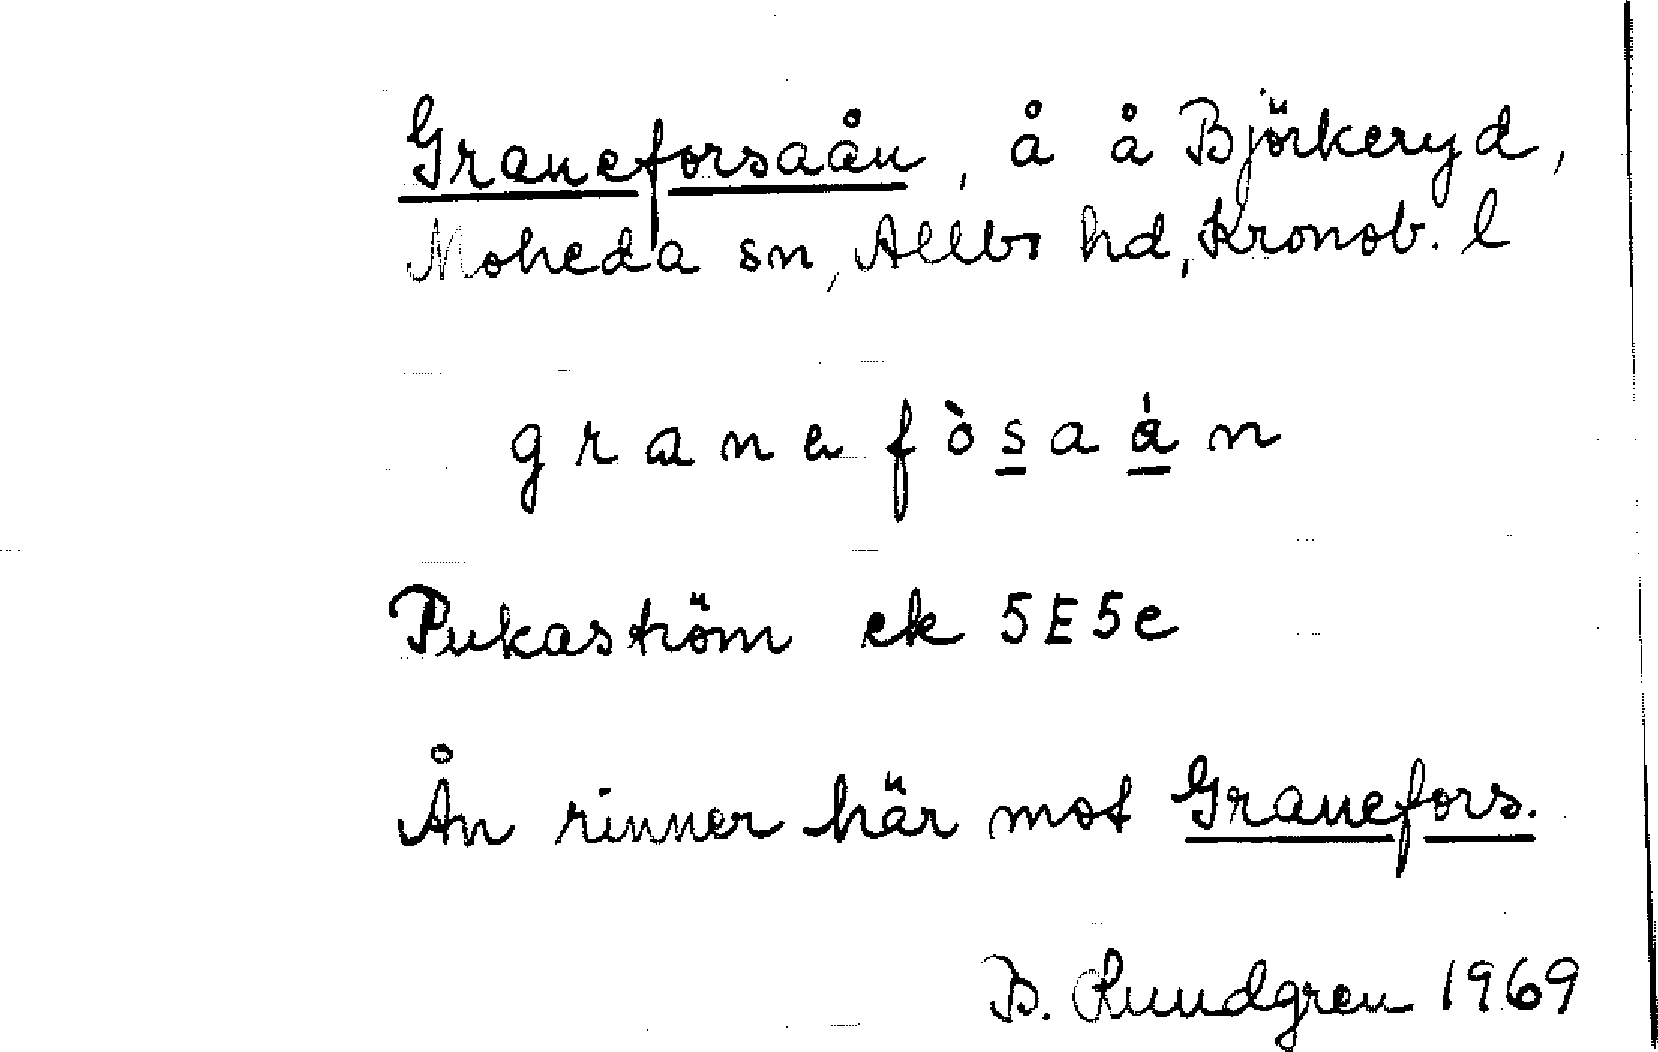 Graneforsaån, å å Björkeryd,
Moheda sn, Allbo hd, Kronob. l
granefòsaán
Pukaström ek 5E5e
Ån rinner här mot Granefors.
B. Lundgren 1969